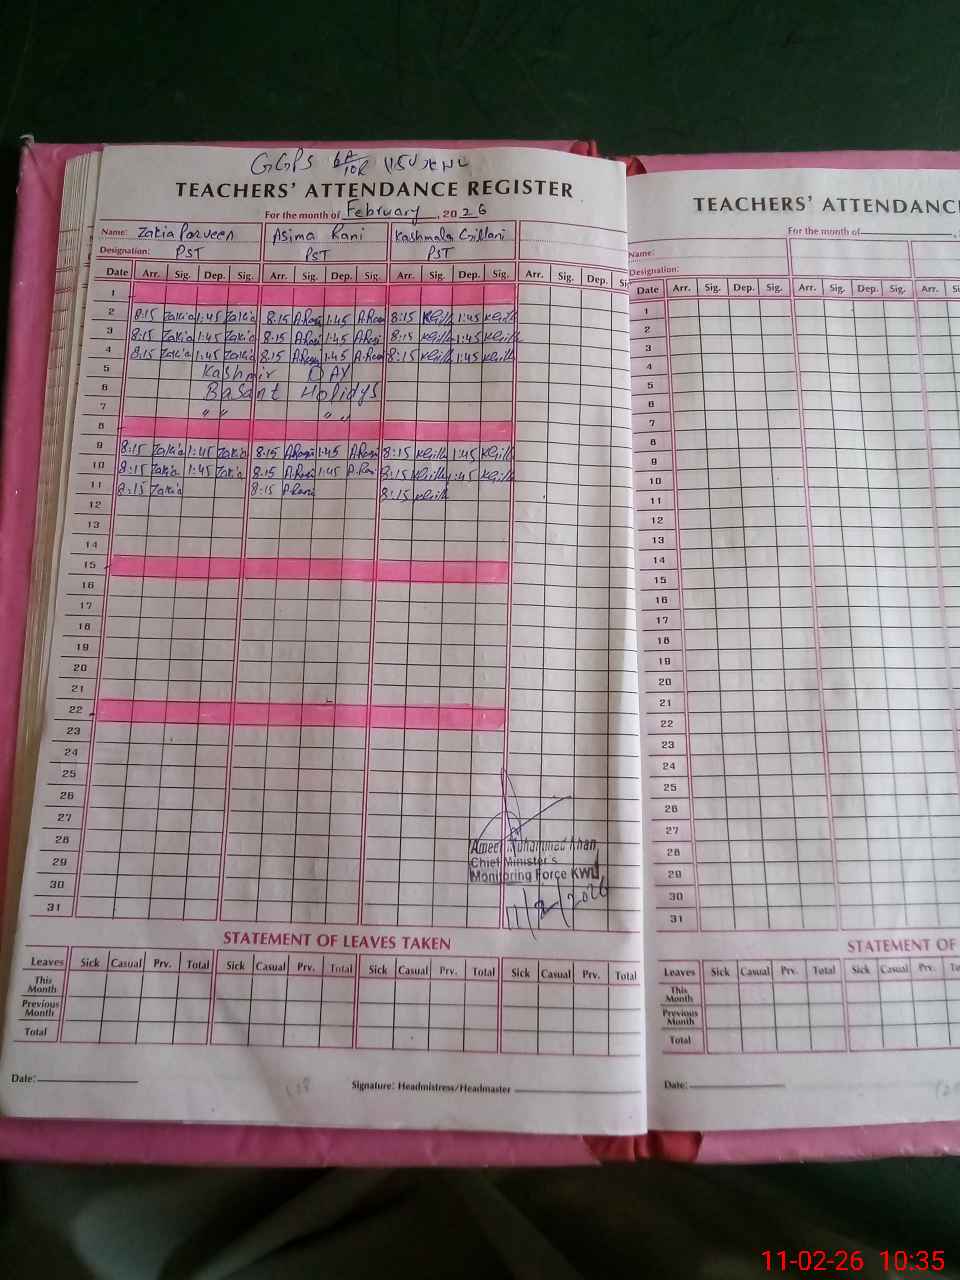 GGPS
TEACHERS' ATTENDANCE REGISTER
For the month of February, 2026
Name: Zakia Parveen Asima Rani Kashmala Gillani
Designation: PST PST PST
Date Arr. Sig. Dep. Sig. Arr. Sig. Dep. Sig. Arr. Sig. Dep. Sig. Arr. Sig. Dep.
1
2 8:15 Zakia 1:45 Zakia 8:15 A.Rani 1:45 A.Rani 8:15 KGilla 1:45 KGilla
3 8:15 Zakia 1:45 Zakia 8:15 A.Rani 1:45 A.Rani 8:15 KGilla 1:45 KGilla
4 8:15 Zakia 1:45 Zakia 8:15 A.Rani 1:45 A.Rani 8:15 KGilla 1:45 KGilla
5 Kashmir DAY
6 Basant Holidys
7 " " " "
8
9 8:15 Zakia 1:45 Zakia 8:15 A.Rani 1:45 A.Rani 8:15 KGilla 1:45 KGilla
10 8:15 Zakia 1:45 Zakia 8:15 A.Rani 1:45 A.Rani 8:15 KGilla 1:45 KGilla
11 8:15 Zakia 8:15 A.Rani 8:15 KGilla
12
13
14
15
16
17
18
19
20
21
22
23
24
25
26
27
28
29
30
31
Muhammad Khan
Chief Minister's
Monitoring Force KWL
11/2/2026
STATEMENT OF LEAVES TAKEN
Leaves Sick Casual Prv. Total Sick Casual Prv. Total Sick Casual Prv. Total Sick Casual Prv. Total
This Month
Previous Month
Total
Date: Signature: Headmistress/Headmaster
TEACHERS' ATTENDANC
For the month of
Name:
Designation:
Date Arr. Sig. Dep. Sig. Arr. Sig. Dep. Sig. Arr.
1
2
3
4
5
6
7
8
9
10
11
12
13
14
15
16
17
18
19
20
21
22
23
24
25
26
27
28
29
30
31
STATEMENT OF
Leaves Sick Casual Prv. Total Sick Casual Prv.
This Month
Previous Month
Total
Date:
11-02-26 10:35